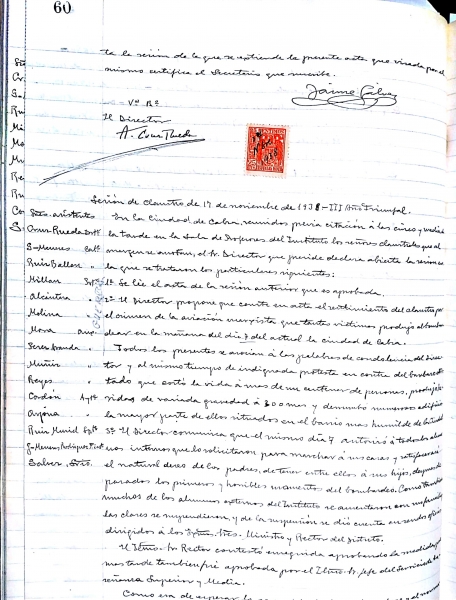 60
ta la sesión de la que se extiende la presente acta que visada por el
mismo certifica el Secretario que suscribe.
Jaime Gálvez
Vº Bº
El Director
A. Cruz Rueda
Sesión de Claustro de 17 de noviembre de 1938 - III Año Triunfal.
Sres. asistentes En la Ciudad de Cabra, reunidos previa citación a las cinco y media
Cruz Rueda la tarde en la Sala de Profesores del Instituto los señores claustrales que al
margen se anotan, el Sr. Director que preside declara abierta la sesión en
Ruiz la que se trataron los particulares siguientes:
Millán 1º Se lée el acta de la sesión anterior que es aprobada.
Alcántara 2º El Director propone que conste en acta el sentimiento del claustro por
Molina el crimen de la aviación marxista que tantas víctimas produjo al bombar-
Mora Aux. dear en la mañana del día 7 del actual la ciudad de Cabra.
Perez Aranda Todos los presentes se asocian a las palabras de condolencia del Direc-
Muñiz tor y al mismo tiempo de indignada protesta en contra del bombardeo
Reyes tado que costó la vida á mas de un centenar de personas, produjo he-
Cordon Ayte ridas de variada gravedad á 300 mas y derrumbó numerosos edificios
Arjona la mayor parte de ellos situados en el barrio mas humilde de la ciudad
Ruiz 3º El Director comunica que el mismo día 7 autorizó a todos los alum-
nos internos que lo solicitaron para marchar á sus casas y satisfacer así
Srio. el natural deseo de los padres, de tener entre ellos á sus hijos, después de
pasados los primeros y horribles momentos del bombardeo. Como también
muchos de los alumnos externos del Instituto se ausentaron con sus familias
las clases se suspendieron, y de la suspensión se dió cuenta en sendos oficios
dirigidos á los Excmos. Sres. Ministro y Rector del Distrito.
El Iltmo. Sr. Rector contestó enseguida aprobando la medida, y
mas tarde también fué aprobada por el Iltmo. Sr. Jefe del Servicio de En-
señanza Superior y Media.
Como era de esperar